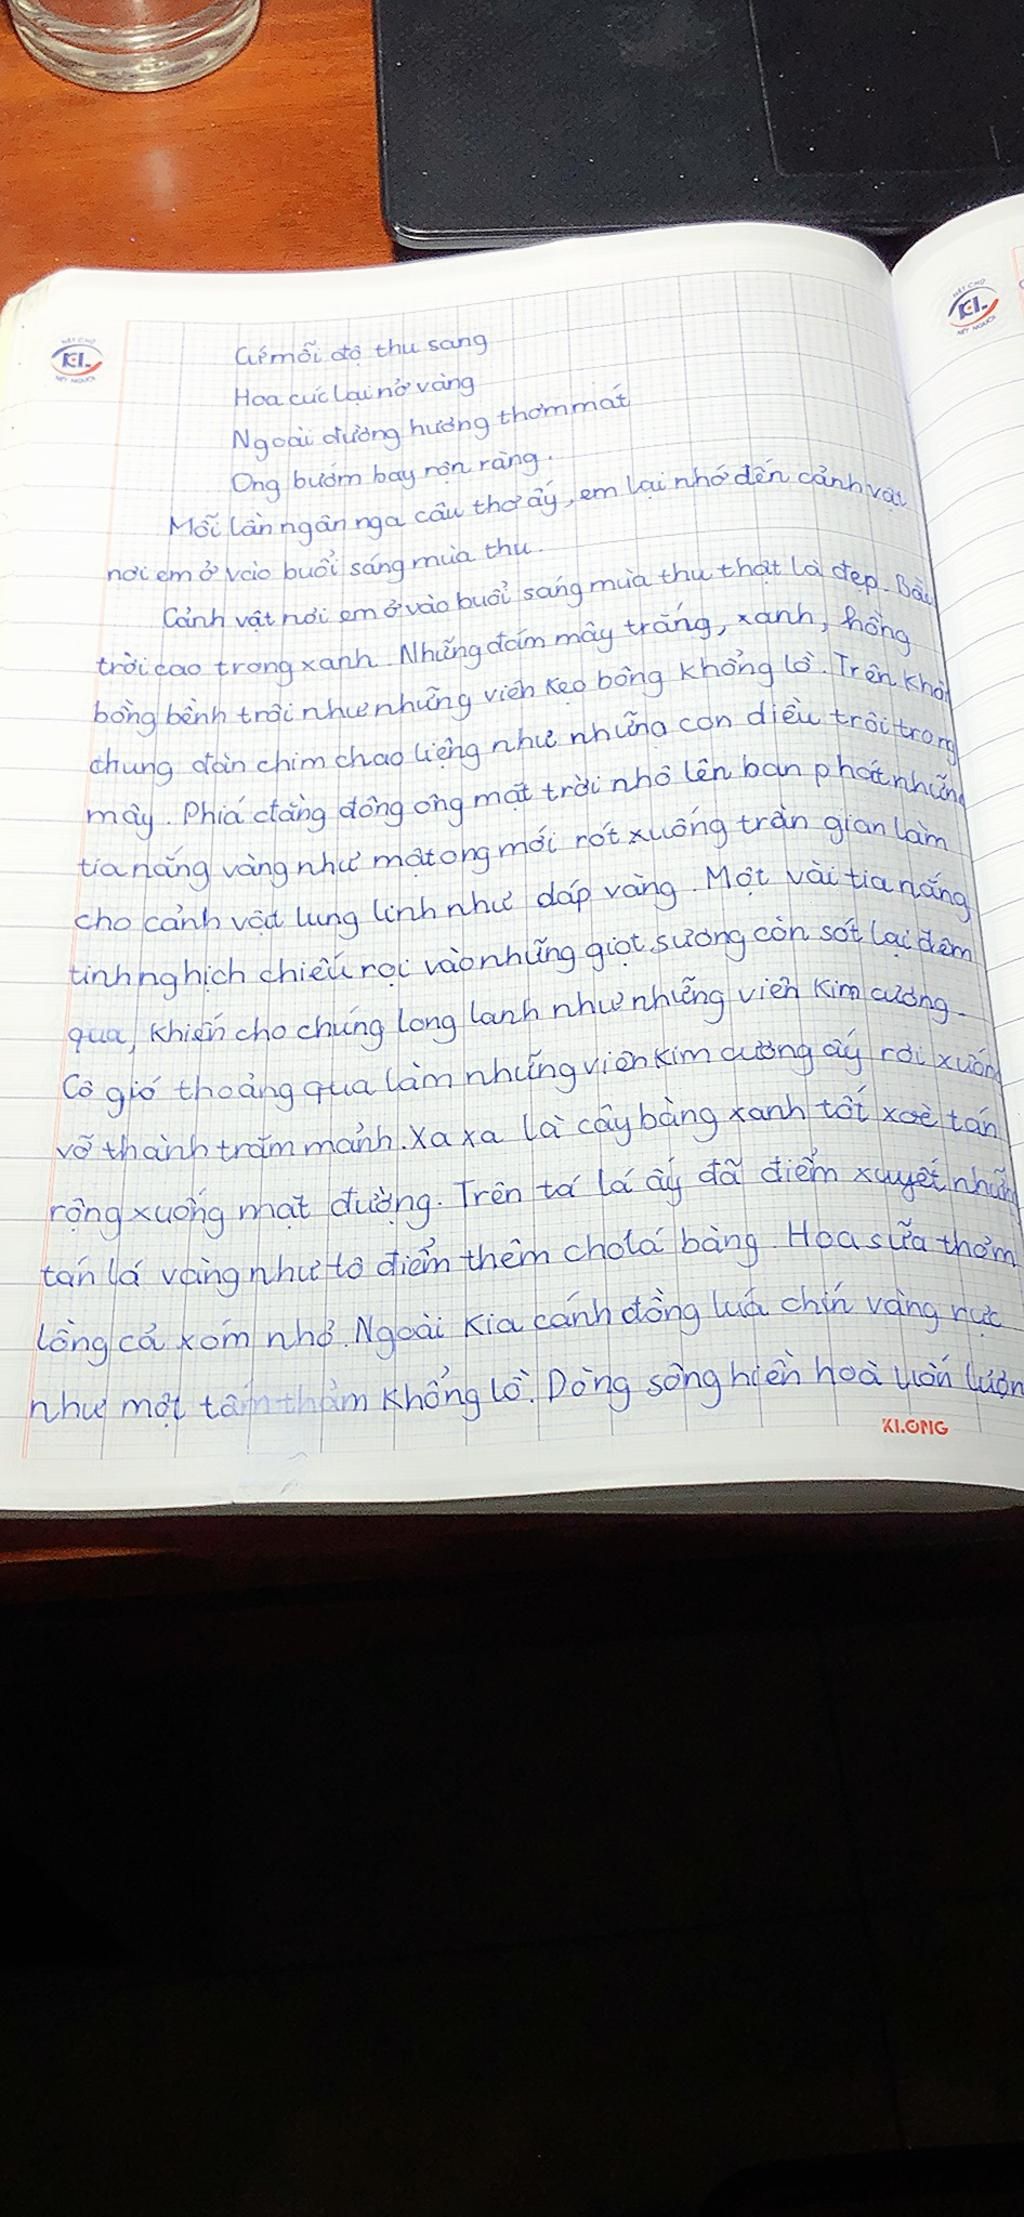 NÉT CHỮ
KL
NẾT NGƯỜI
NÉT CHỮ
KL
NẾT NGƯỜI
Cứ mỗi độ thu sang
Hoa cúc lại nở vàng
Ngoài đường hương thơm mát
Ong bướm bay rộn ràng.
Mỗi lần ngân nga câu thơ ấy, em lại nhớ đến cảnh vật
nơi em ở vào buổi sáng mùa thu.
Cảnh vật nơi em ở vào buổi sáng mùa thu thật là đẹp. Bầu
trời cao trong xanh. Những đám mây trắng, xanh, hồng
bồng bềnh trôi như những viên kẹo bông khổng lồ. Trên
chung đàn chim chao liệng như những con diều trôi trong
mây. Phiá đằng đông ông mặt trời nhô lên ban phát những
tia nắng vàng như mật ong mới rót xuống trần gian làm
cho cảnh vật lung linh như dáp vàng. Một vài tia nắng
tinh nghịch chiếu rọi vào những giọt sương còn sót lại đêm
qua, khiến cho chúng long lanh như những viên kim cương.
Cô gió thoảng qua làm những viên kim cương ấy rơi xuống
vỡ thành trăm mảnh. Xa xa là cây bàng xanh tốt xoè tán
rộng xuống mặt đường. Trên tá lá ấy đã điểm xuyết những
tán lá vàng như tô điểm thêm cho lá bàng. Hoa sữa thơm
lồng cả xóm nhỏ. Ngoài kia cánh đồng luá chín vàng rực
như một tấm thảm khổng lồ. Dòng sông hiền hoà uốn lượn
KLONG